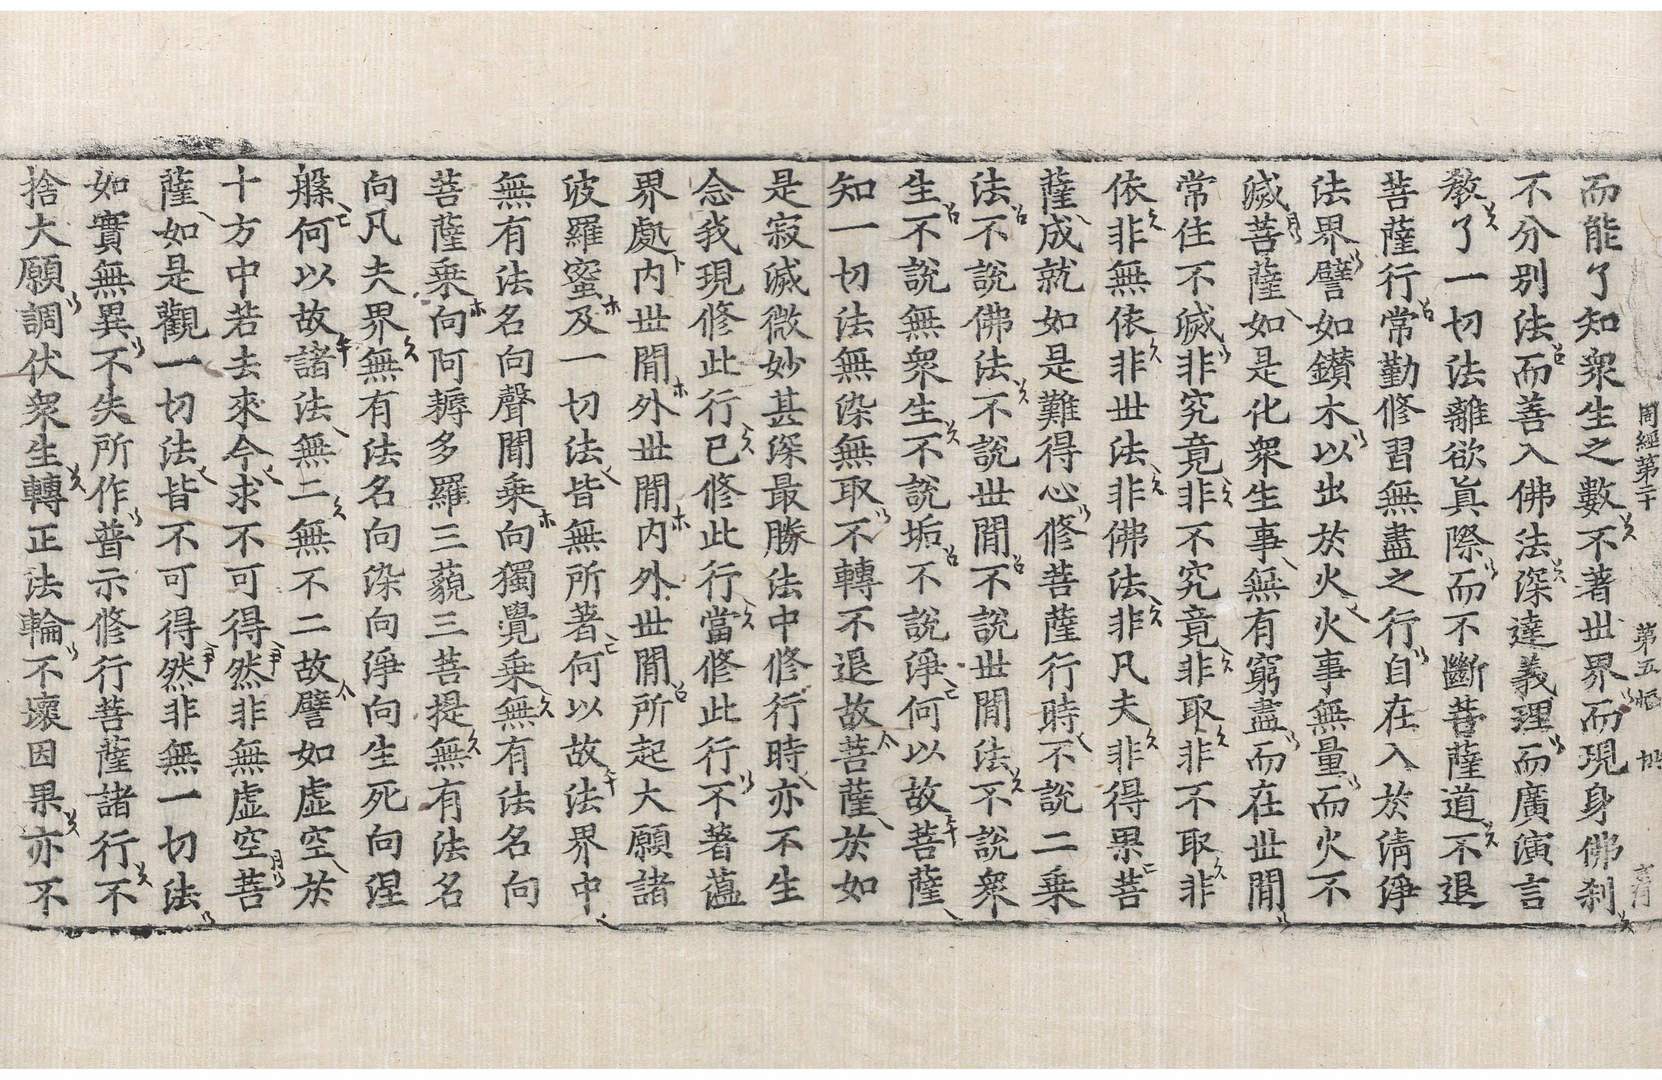 周經第二十 第五幅
而能了知衆生之數不著世界而現身佛刹
不分別法而善入佛法深達義理而廣演言
敎了一切法離欲眞際而不斷菩薩道不退
菩薩行常勤修習無盡之行自在入於淸淨
法界譬如鑚木以出於火火事無量而火不
滅菩薩如是化衆生事無有窮盡而在世間
常住不滅非究竟非不究竟非取非不取非
依非無依非世法非佛法非凡夫非得果菩
薩成就如是難得心修菩薩行時不說二乗
法不說佛法不說世間不說世間法不說衆
生不說無衆生不說垢不說淨何以故菩薩
知一切法無染無取不轉不退故菩薩於如
是寂滅微妙甚深最勝法中修行時亦不生
念我現修此行已修此行當修此行不著蘊
界處内世間外世間内外世間所起大願諸
波羅蜜及一切法皆無所著何以故法界中
無有法名向聲聞乗向獨覺乗無有法名向
菩薩乗向阿耨多羅三藐三菩提無有法名
向凡夫界無有法名向染向淨向生死向涅
槃何以故諸法無二無不二故譬如虛空於
十方中若去來今求不可得然非無虛空菩
薩如是觀一切法皆不可得然非無一切法
如實無異不失所作普示修行菩薩諸行不
捨大願調伏衆生轉正法輪不壞因果亦不